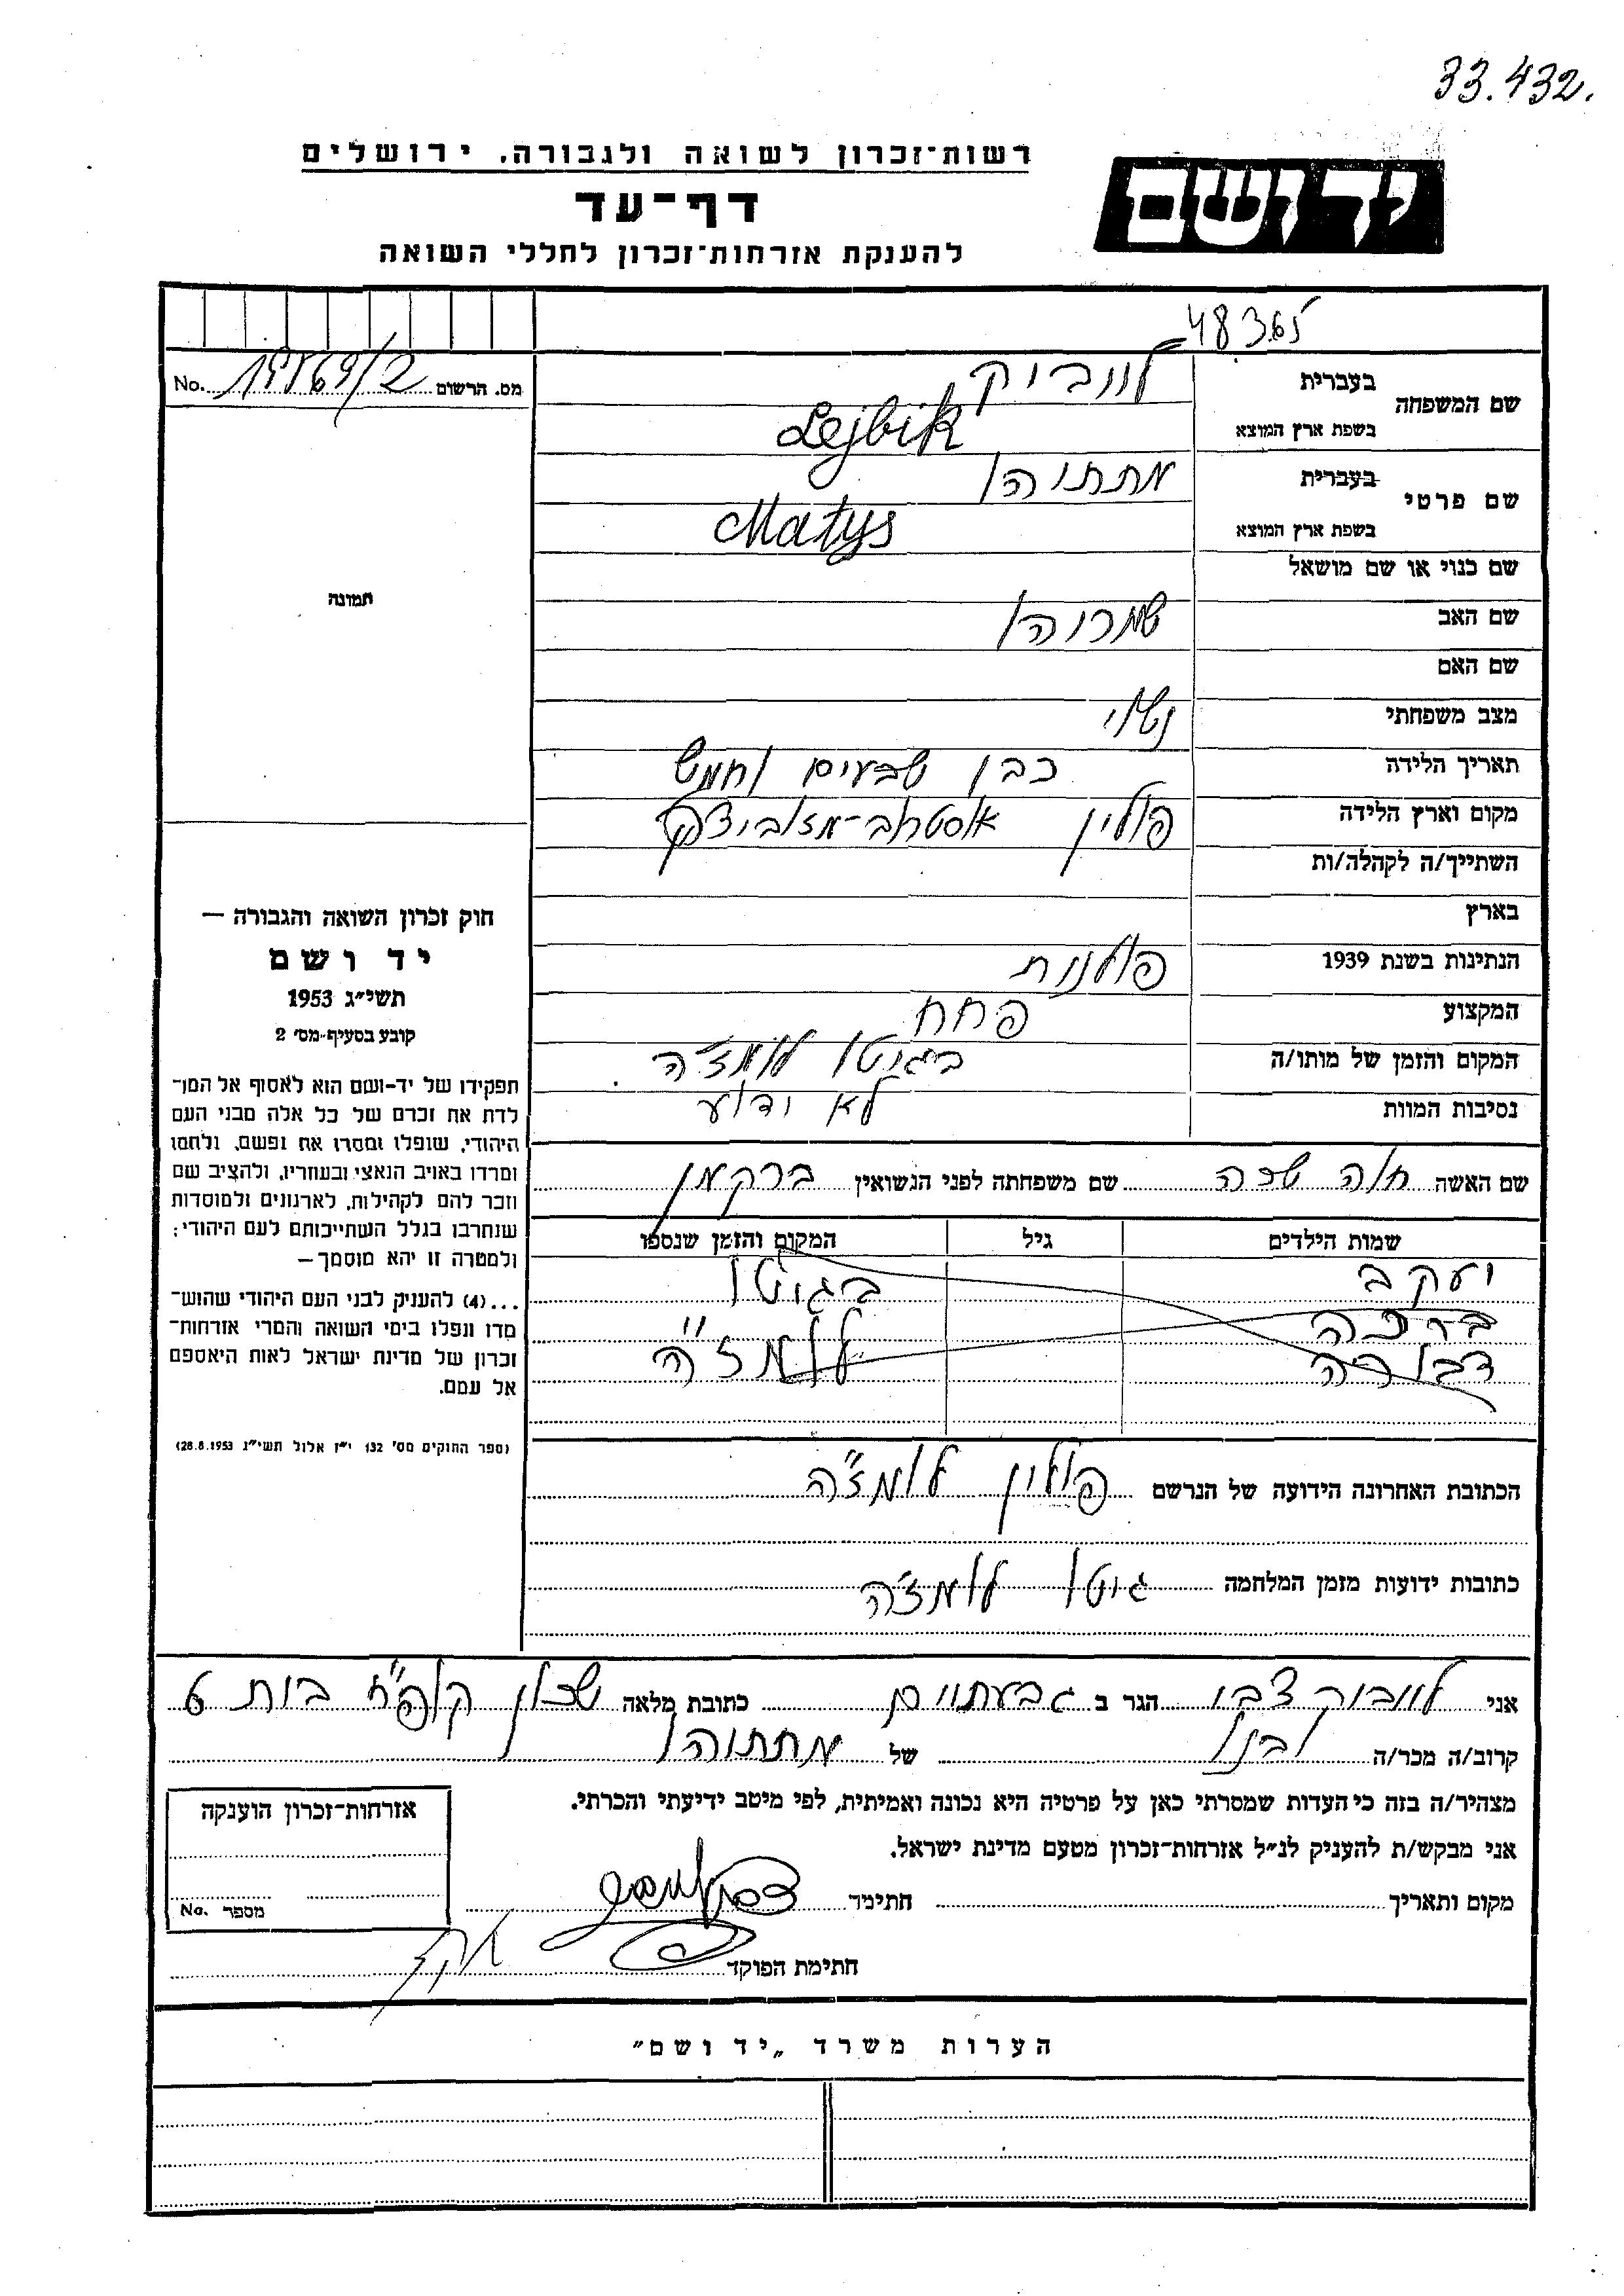 33.432.
רשות־זכרון לשואה ולגבורה, ירושלים
יד ושם
דף־עד
להענקת אזרחות־זכרון לחללי השואה
48365
מס. הרשום No.
שם המשפחה
בעברית לייביק
בשפת ארץ המוצא Lejbik
שם פרטי
בעברית מתתיהו
בשפת ארץ המוצא Matys
שם כנוי או שם מושאל
תמונה
שם האב שמריהו
שם האם
מצב משפחתי נשוי
תאריך הלידה כבן שבעים וחמש
מקום וארץ הלידה פולין אוסטרוב-מזוביצק
השתייך/ה לקהלה/ות
בארץ
הנתינות בשנת 1939 פולנית
המקצוע פחח
המקום והזמן של מותו/ה בגיטו לומז'ה
נסיבות המוות לא ידוע
חוק זכרון השואה והגבורה —
יד ושם
תשי"ג 1953
קובע בסעיף מס' 2
תפקידו של יד-ושם הוא לאסוף אל המו־
לדת את זכרם של כל אלה מבני העם
היהודי, שנפלו ומסרו את נפשם, ולחמו
ומרדו באויב הנאצי ובעוזריו, ולהציב שם
וזכר להם לקהילות, לארגונים ולמוסדות
שנחרבו בגלל השתייכותם לעם היהודי;
ולמטרה זו יהא מוסמך —
...(4) להעניק לבני העם היהודי שהוש־
מדו ונפלו בימי השואה והמרי אזרחות־
זכרון של מדינת ישראל לאות היאספם
אל עמם.
(ספר החוקים מס' 132 י"ז אלול תשי"ג 28.8.1953)
שם האשה חיה שבה שם משפחתה לפני הנשואין ברקמן
שמות הילדים גיל המקום והזמן שנספו
יעקב בגיטו
ברכה לומז'ה
דבורה
הכתובת האחרונה הידועה של הנרשם פולין לומז'ה
כתובות ידועות מזמן המלחמה גיטו לומז'ה
אני לייביק צבי הגר ב גבעתיים כתובת מלאה שכון קופ"ח בית 6
קרוב/ה מכר/ה בנו של מתתיהו
מצהיר/ה בזה כי העדות שמסרתי כאן על פרטיה היא נכונה ואמיתית, לפי מיטב ידיעתי והכרתי.
אני מבקש/ת להעניק לנ"ל אזרחות־זכרון מטעם מדינת ישראל.
מקום ותאריך חתימה
חתימת הפוקד
אזרחות־זכרון הוענקה
מספר No.
הערות משרד „יד ושם"